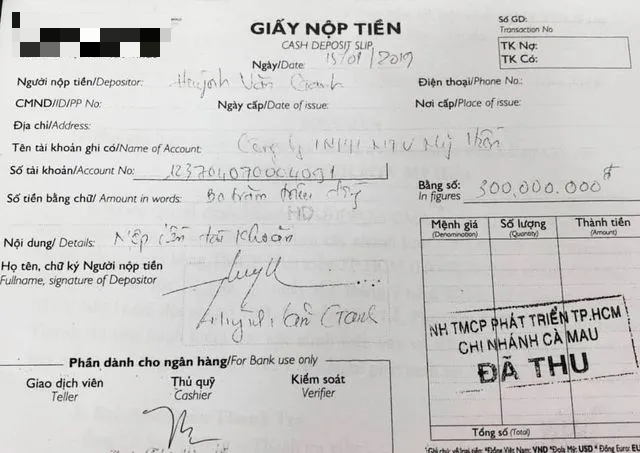 GIẤY NỘP TIỀN
CASH DEPOSIT SLIP
Số GD:
Transaction No
Ngày/Date: 15/01/2019
TK Nợ:
TK Có:
Người nộp tiền/Depositor: Huỳnh Văn Oanh
Điện thoại/Phone No.:
CMND/ID/PP No:
Ngày cấp/Date of issue:
Nơi cấp/Place of issue:
Địa chỉ/Address:
Tên tài khoản ghi có/Name of Account: Công ty TNHH MTV Mỹ
Số tài khoản/Account No:
Số tiền bằng chữ/ Amount in words: Ba trăm triệu đồng
HD
Bằng số: 300,000.000đ
In figures
Nội dung/ Details: Nộp tiền tài khoản
Họ tên, chữ ký Người nộp tiền
Fullname, signature of Depositor
Huỳnh Văn Oanh
Mệnh giá Số lượng Thành tiền
(Denomination) (Quantity) (Amount)
NH TMCP PHÁT TRIỂN TP.HCM
CHI NHÁNH CÀ MAU
ĐÃ THU
Phần dành cho ngân hàng/For Bank use only
Giao dịch viên Thủ quỹ Kiểm soát
Teller Cashier Verifier
Tổng số (Total)
VND *Đola Mỹ: USD * Đồng Euro: